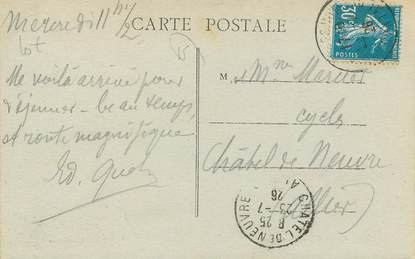 Mercredi 11 h 1/2
CARTE POSTALE
Me voila arrivé pour
déjeuner - beau temps
et route magnifique
Ed.
M
Mme
cycles
Châtel de Neuvre
(Allier)
30c
POSTES
CHATEL DE NEUVRE
8 25
23 - 7
26